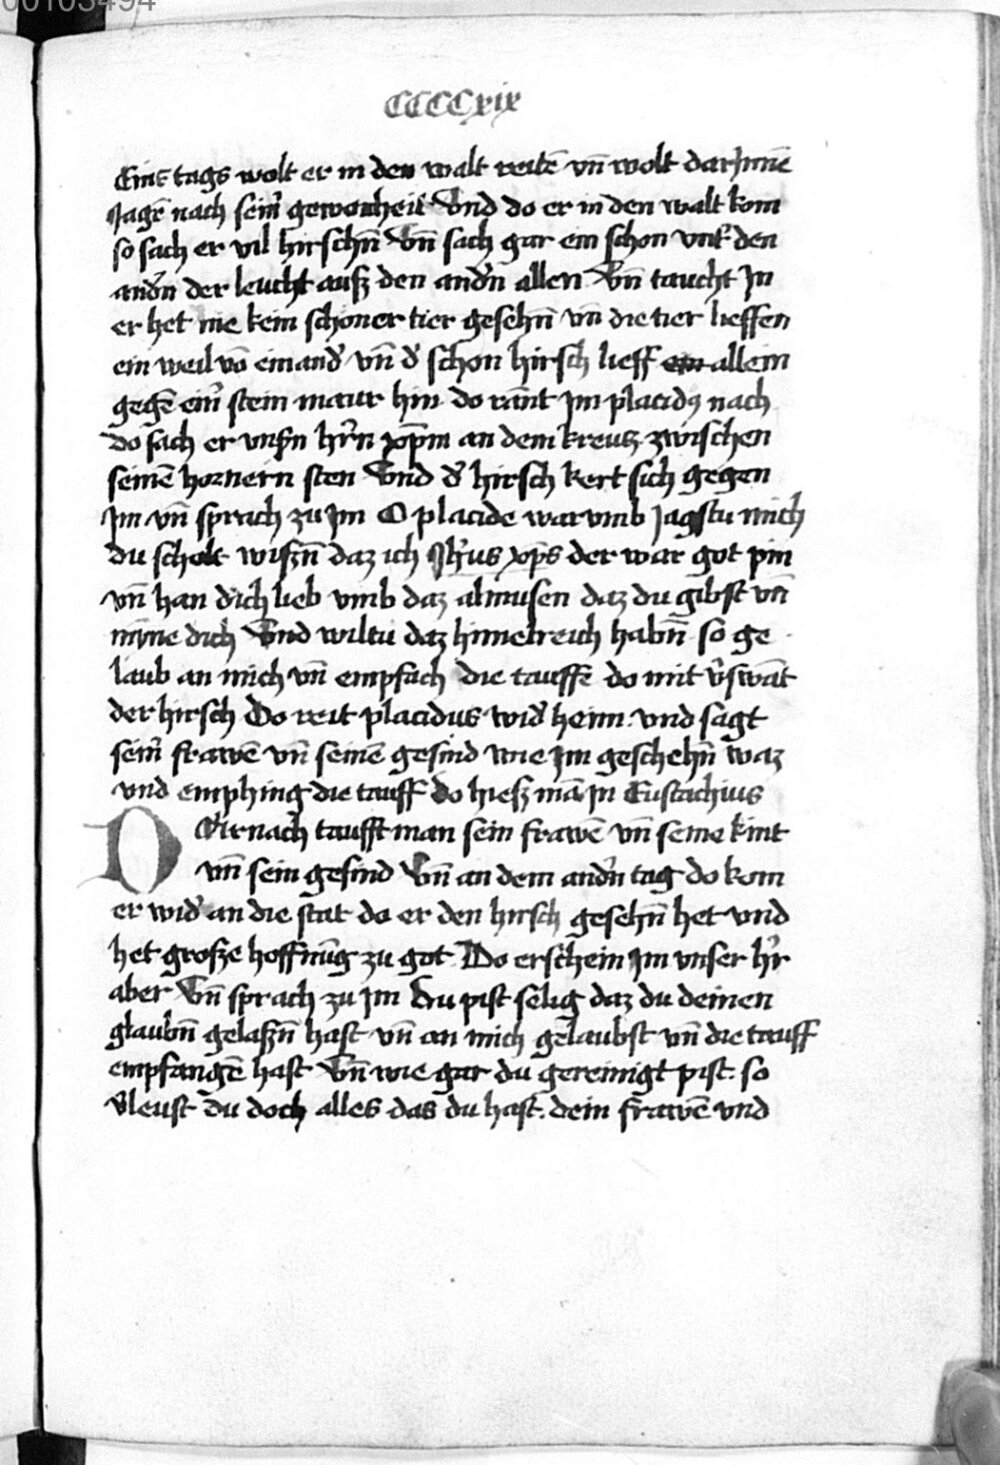 00103494
CCCCxix
Eins tags wolt er in den walt reitē vn̄ wolt darJnnē
Jagē nach seim̉ gewonheit Vnd do er in den walt kom
so sach er vil hirschn̄ Vn̄ sach gar ein schon vnt̉ den
and̉n der leucht auſz den and̉n allen Vn̄ taucht Jn
er het nie kein schoner tier gesehn̄ vn̄ die tier lieffen
ein weil vō einand̉ vn̄ d̉ schon hirsch lieff allein
gegē eim̉ stein maur hin do rānt Jm placidꝰ nach
do sach er vnsn̉ hr̉n xp̄m an dem kreutz zwischen
seinē hornern sten Vnd d̉ hirsch kert sich gegen
Jm vn̄ sprach zu Jm O placide warvmb Jagstu mich
du scholt wiſzn̄ daz ich Jh̉us xp̄s der war got pin
vn̄ han dich lieb vmb daz almusen daz du gibst vn̄
mȳne dich Vnd wiltu daz himelreich habn̄ so ge
laub an mich vn̄ empfach die tauffe do mit v̉swāt
der hirsch Do reit placidus wid̉ heim vnd sagt
seim̉ frawē vn̄ seinē gesind wie Jm geschehn̄ waz
vnd emphing die tauff do hieſz mā Jn Eustachius
DArnach taufft man sein frawē vn̄ seine kint
vn̄ sein gesind Vn̄ an dem and̉n tag do kom
er wid̉ an die stat do er den hirsch gesehn̄ het vnd
het groſze hoffnūg zu got Do erschein Jm vnser hr̉
aber Vn̄ sprach zu Jm Du pist selig daz du deinen
glaubn̄ gelaſzn̄ hast vn̄ an mich gelaubst vn̄ die tauff
empfangē hast Vn̄ wie gar du gereinigt pist. so
v̉leust du doch alles das du hast. dein frawē vnd